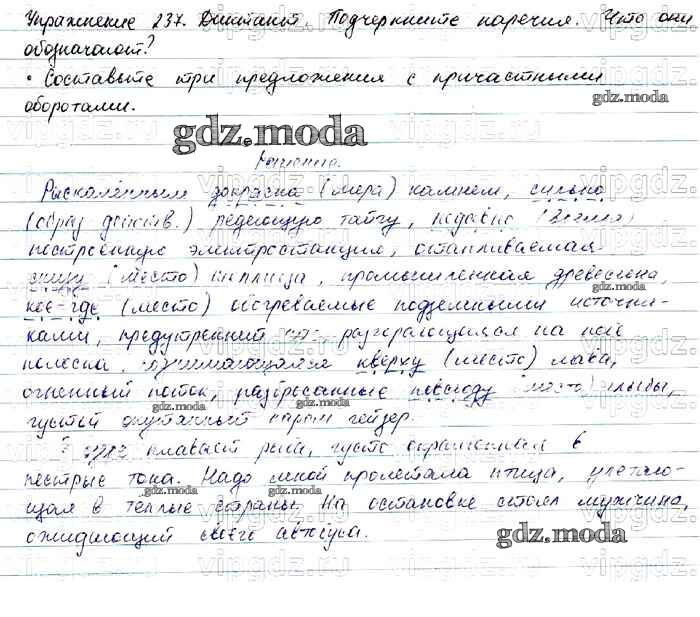 Упражнение 237. Диктант. Подчеркните наречия. Что они
обозначают?
• Составьте три предложения с причастными
оборотами.
gdz.moda
gdz.moda
Решение.
Раскалённым докрасна (мера) камнем, сильно
(образ действ.) редеющую тайгу, недавно (время)
построенную электростанцию, отапливаемая
снизу (место) теплица, промышленная древесина,
gdz.moda
кое-где (место) обогреваемые подземными источни-
ками, предутренний разгорающаяся на небе
полоска, поднимающаяся кверху (место) лава,
огненный поток, разбросанные повсюду (место) глыбы,
gdz.moda
gdz.moda
густой окутанный паром гейзер.
плавает рыба, густо окрашенная в
пестрые тона. Надо мной пролетала птица, улетаю-
gdz.moda
щая в теплые страны. На остановке стоял мужчина,
ожидающий своего автобуса.
gdz.moda